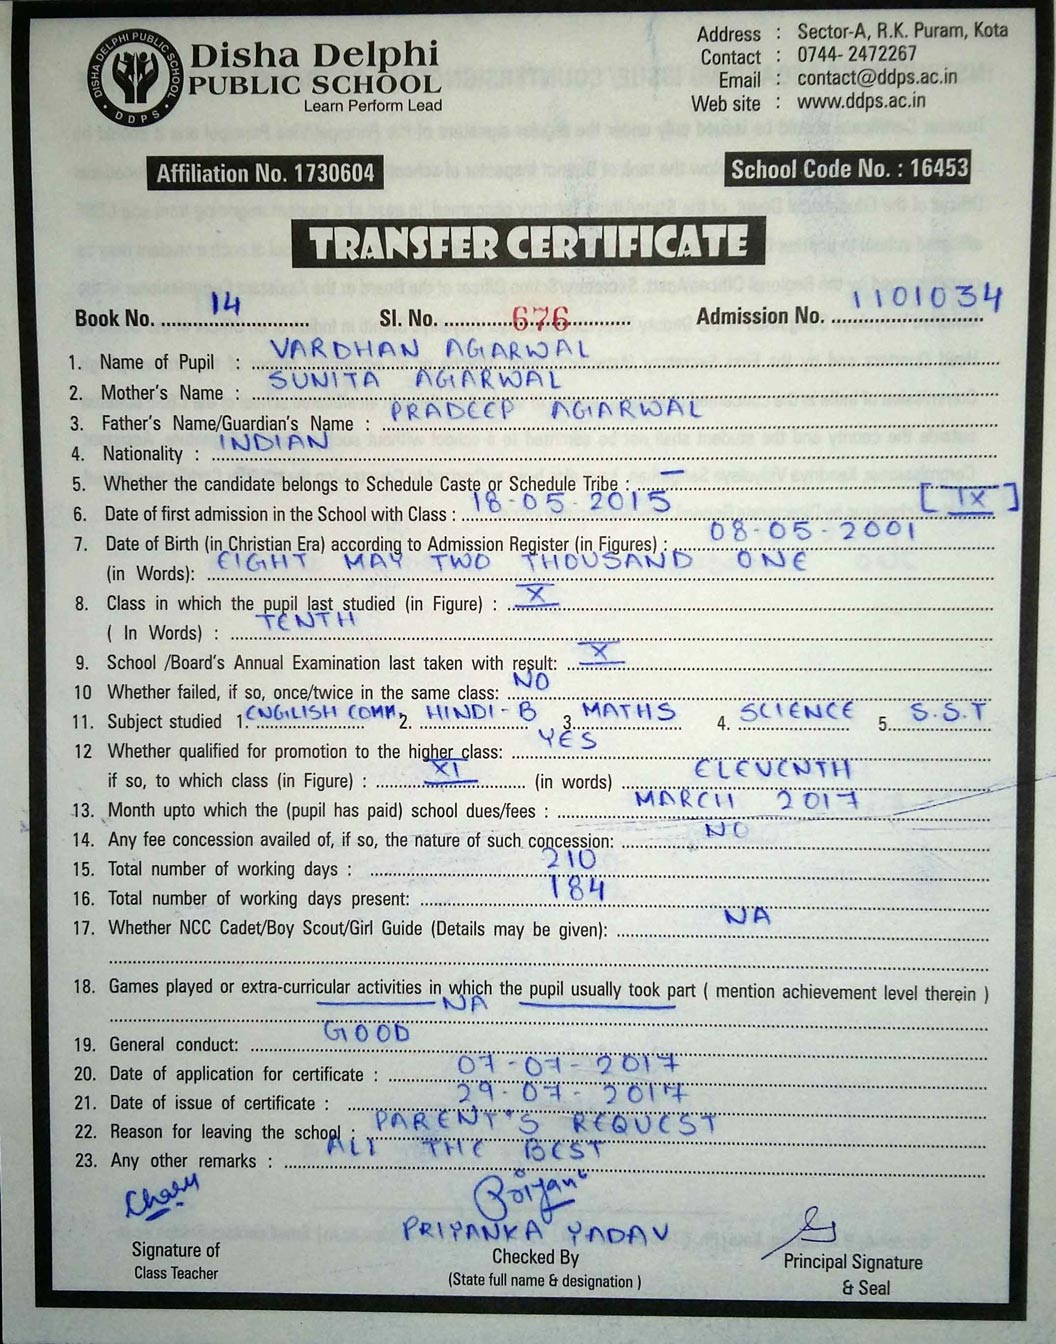 DISHA-DELPHI PUBLIC SCHOOL
DDPS
Disha Delphi
PUBLIC SCHOOL
Learn Perform Lead
Address : Sector-A, R.K. Puram, Kota
Contact : 0744- 2472267
Email : contact@ddps.ac.in
Web site : www.ddps.ac.in
Affiliation No. 1730604
School Code No. : 16453
TRANSFER CERTIFICATE
Book No. 14 Sl. No. 676 Admission No. 1101034
1. Name of Pupil : VARDHAN AGARWAL
2. Mother's Name : SUNITA AGARWAL
3. Father's Name/Guardian's Name : PRADEEP AGARWAL
4. Nationality : INDIAN
5. Whether the candidate belongs to Schedule Caste or Schedule Tribe : —
6. Date of first admission in the School with Class : 18-05-2015 [IX]
7. Date of Birth (in Christian Era) according to Admission Register (in Figures) : 08-05-2001
(in Words): EIGHT MAY TWO THOUSAND ONE
8. Class in which the pupil last studied (in Figure) : X
( In Words) : TENTH
9. School /Board's Annual Examination last taken with result: X
10 Whether failed, if so, once/twice in the same class: NO
11. Subject studied 1. ENGLISH COMM. 2. HINDI-B 3. MATHS 4. SCIENCE 5. S.S.T
12 Whether qualified for promotion to the higher class: YES
if so, to which class (in Figure) : XI (in words) ELEVENTH
13. Month upto which the (pupil has paid) school dues/fees : MARCH 2017
14. Any fee concession availed of, if so, the nature of such concession: NO
15. Total number of working days : 210
16. Total number of working days present: 184
17. Whether NCC Cadet/Boy Scout/Girl Guide (Details may be given): NA
18. Games played or extra-curricular activities in which the pupil usually took part ( mention achievement level therein )
NA
19. General conduct: GOOD
20. Date of application for certificate : 07-07-2017
21. Date of issue of certificate : 29-07-2017
22. Reason for leaving the school : PARENT'S REQUEST
23. Any other remarks : ALL THE BEST
PRIYANKA YADAV
Signature of Checked By Principal Signature
Class Teacher (State full name & designation ) & Seal